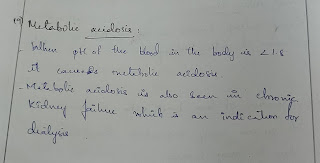 Metabolic acidosis :
- When pH of the blood in the body is < 1.8
it causes metabolic acidosis
- Metabolic acidosis is also seen in chronic
kidney failure which is an indication for
dialysis